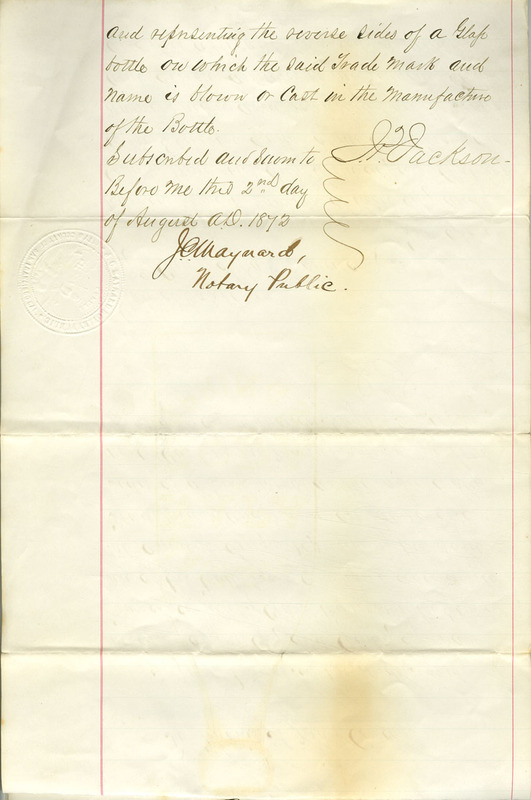 and repnsenting the reverse sides of a Glass
bottle on which the said Trade Mark and
Name is blown or Cast in the Manufacture
of the Bottle.
Subscribed and Sworn to Jackson
Before me this 2nd day
of August A.D. 1872
J.C. Maynard,
Notary Public.